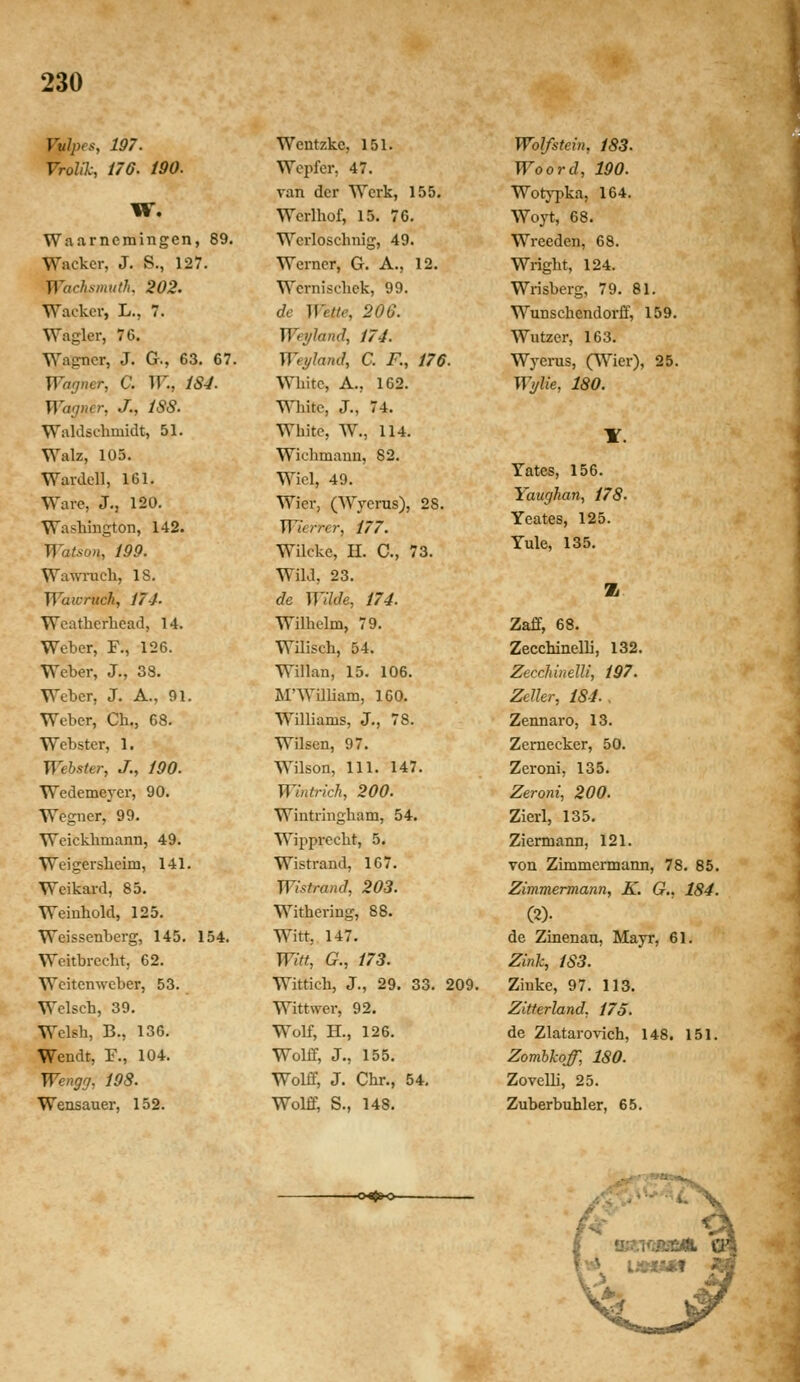 230
Vulpes, 197.
Vrolik, 176. 190.
W.
Waarnemingen, 89.
Wacker, J. S., 127.
Wachsmuth, 202.
Wacker, L., 7.
Wagler, 76.
Wagner, J. G., 63. 67.
Wagner, C. W., 184.
Wagner, J., 188.
Waldschmidt, 51.
Walz, 105.
Wardell, 161.
Ware, J., 120.
Washington, 142.
Watson, 199.
Wawruch, 18.
Wawruch, 174.
Weatherhead, 14.
Weber, F., 126.
Weber, J., 38.
Weber, J. A., 91.
Weber, Ch., 68.
Webster, 1.
Webster, J., 190.
Wedemeyer, 90.
Wegner, 99.
Weickhmann, 49.
Weigersheim, 141.
Weikard, 85.
Weinhold, 125.
Weissenberg, 145. 154.
Weitbrecht, 62.
Weitenweber, 53.
Welsch, 39.
Welsh, B., 136.
Wendt, F., 104.
Wengg, 198.
Wensauer, 152.
Wentzke, 151.
Wepfer, 47.
van der Werk, 155.
Werlhof, 15. 76.
Werloschnig, 49.
Werner, G. A., 12.
Wernischek, 99.
de Wette, 206.
Weyland, 174.
Weyland, C. F., 176.
White, A., 162.
White, J., 74.
White, W., 114.
Wichmann, 82.
Wiel, 49.
Wier, (Wyerus), 28.
Wierrer, 177.
Wilcke, H. C., 73.
Wild, 23.
de Wilde, 174.
Wilhelm, 79.
Wilisch, 54.
Willan, 15. 106.
M'William, 160.
Williams, J., 78.
Wilsen, 97.
Wilson, 111. 147.
Wintrich, 200.
Wintringham, 54.
Wipprecht, 5.
Wistrand, 167.
Wistrand, 203.
Withering, 88.
Witt, 147.
Witt, G., 173.
Wittich, J., 29. 33. 209.
Wittwer, 92.
Wolf, H., 126.
Wolff, J., 155.
Wolff, J. Chr., 54.
Wolff, S., 148.
Wolfstein, 183.
Woord, 190.
Wotypka, 164.
Woyt, 68.
Wreeden, 68.
Wright, 124.
Wrisberg, 79. 81.
Wunschendorff, 159.
Wutzer, 163.
Wyerus, (Wier), 25.
Wylie, 180.
Y.
Yates, 156.
Yaughan, 178.
Yeates, 125.
Yule, 135.
Z
Zaff, 68.
Zecchinelli, 132.
Zecchinelli, 197.
Zeller, 184.
Zennaro, 13.
Zernecker, 50.
Zeroni, 135.
Zeroni, 200.
Zierl, 135.
Ziermann, 121.
von Zimmermann, 78. 85.
Zimmermann, K. G., 184.
(2).
de Zinenau, Mayr, 61.
Zink, 183.
Zinke, 97. 113.
Zitterland, 175.
de Zlatarovich, 148. 151.
Zombkoff, 180.
Zovelli, 25.
Zuberbuhler, 65.